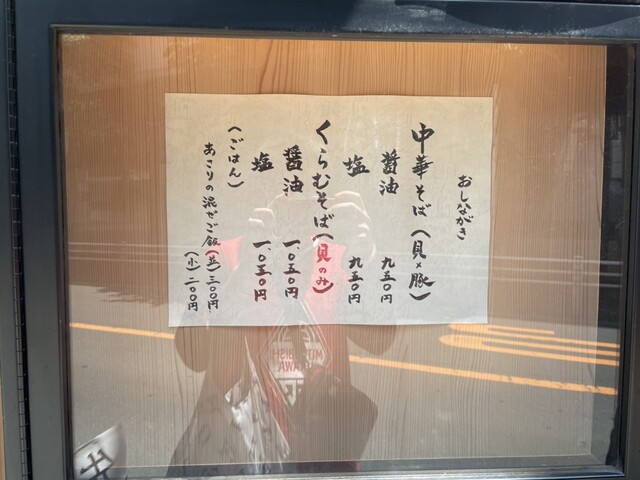 おしながき
中華そば(貝×豚)
醤油 九五〇円
塩 九五〇円
くらむそば(貝のみ)
醤油 一、〇五〇円
塩 一、〇五〇円
(ごはん)
あさりの混ぜご飯(並)三〇〇円
(小)二〇〇円